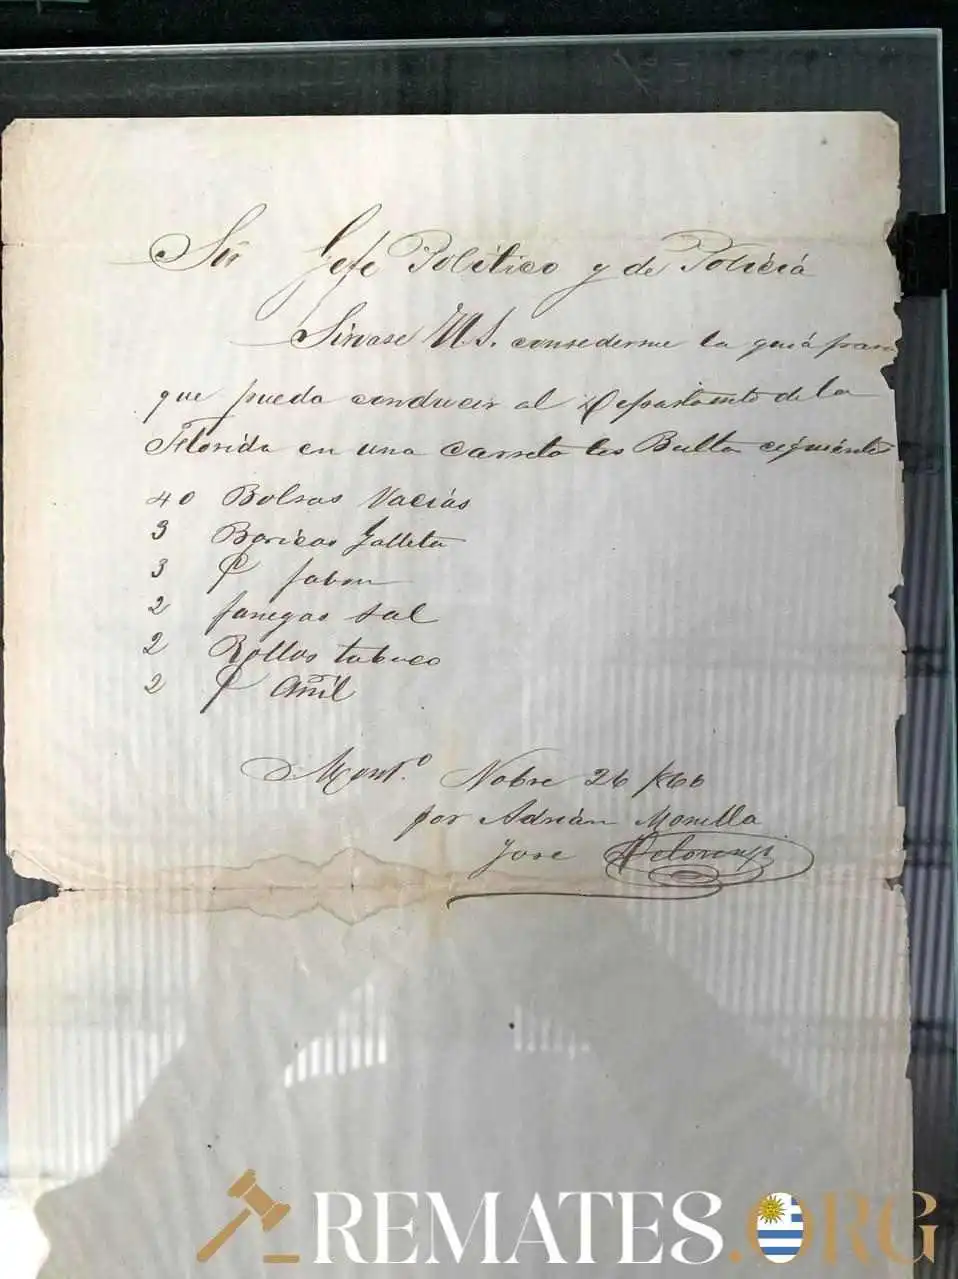 Sr Jefe Político y de Policiá
Sirvase V.S. consederme la guiá para
que pueda conducir al Departamento de la
Florida en una carreta los Bultos ceguientes
40 Bolsas Vaciás
3 Baricas Galleta
3 jabon
2 fanegas sal
2 Rollos tabaco
2 Añil
Mont.º Nobre 26 1866
por Adrián Monilla
Jose
REMATES.ORG